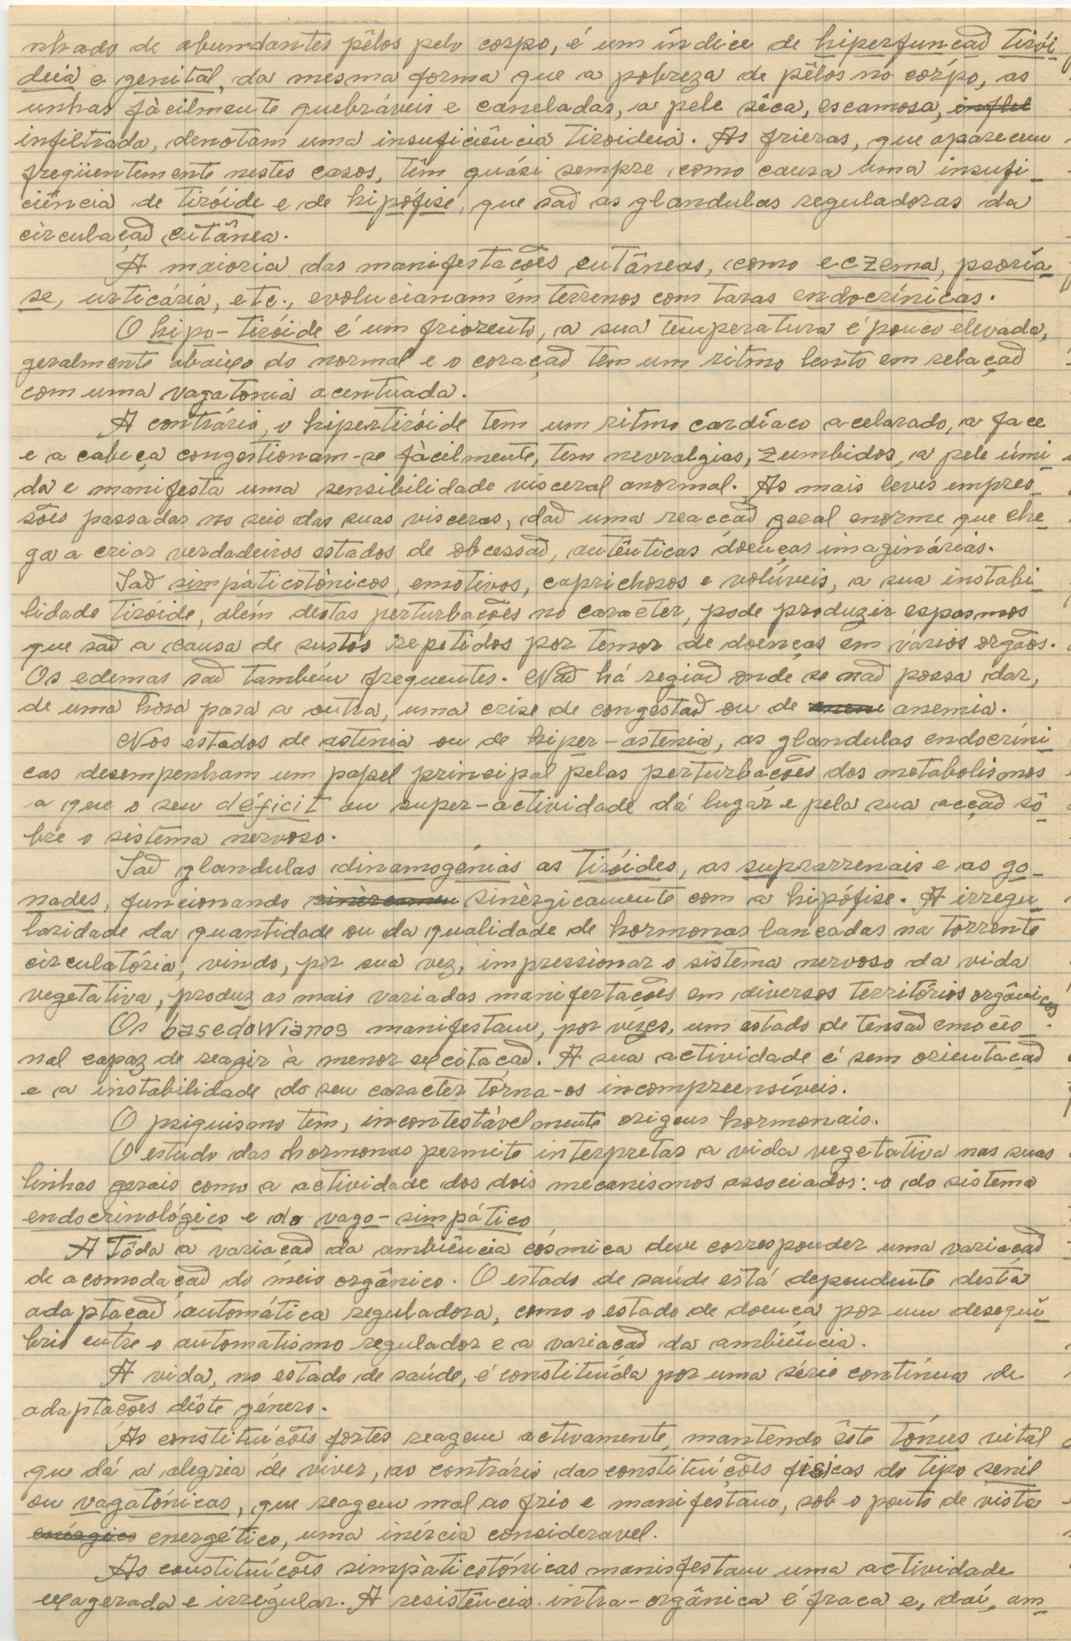 nhado de abundantes pêlos pelo corpo, é um índice de hiperfunçaõ tirói-
deia e genital, da mesma forma que a pobreza de pêlos no corpo, as
unhas fàcilmente quebráveis e caneladas, a pele sêca, escamosa,
infiltrada, denotam uma insuficiência tiroideia. As frieras, que aparecem
freqüentemente nestes casos, têm quási sempre como causa uma insufi-
ciência de tiróide e de hipófise, que saõ as glandulas reguladoras da
circulaçaõ cutânea.
A maioria das manifestações cutâneas, como eczema, psoría-
se, urticária, etc., evolucianam em terrenos com taras endocrínicas.
O hipo-tiróide é um friorento, a sua temperatura é pouco elevada,
geralmente abaixo do normal e o coraçaõ tem um ritmo lento em relaçaõ
com uma vagatonia acentuada.
A contrário, o hipertiróide tem um ritmo cardíaco acelarado, a face
e a cabeça congestionam-se fàcilmente, tem nevralgias, zumbidos, a pele úmi-
da e manifesta uma sensibilidade visceral anormal. As mais leves impres-
sões passadas no seio das suas visceras, daõ uma reacçaõ geral enorme que che-
ga a criar verdadeiros estados de obcessaõ, autênticas doenças imaginárias.
Saõ simpàticotònicos, emotivos, caprichosos e volúveis, a sua instabi-
lidade tiróide, além destas perturbações no caracter, pode produzir espasmos
que saõ a causa de sustos repetidos por temor de doenças em vários orgãos.
Os edemas saõ também frequentes. Naõ há regiaõ onde se naõ possa dar,
de uma hora para a outra, uma crise de congestaõ ou de anemia.
Nos estados de astenia ou de hiper-astenia, as glandulas endocríni-
cas desempenham um papel principal pelas perturbações dos metabolismos
a que o seu déficit ou super-actividade dá lugar e pela sua acçaõ sô-
bre o sistema nervoso.
Saõ glandulas dinamogénias as tiróides, as suprarrenais e as go-
nades, funcionando sinèrgicamente com a hipófise. A irregu-
laridade da quantidade ou da qualidade de hormonas lançadas na torrente
circulatória, vindo, por sua vez, impressionar o sistema nervoso da vida
vegetativa, produz as mais variadas manifestações em diversos territórios orgânicos.
Os basedowianos manifestam, por vêzes, um estado de tensaõ emocio-
nal capaz de reagir à menor excitaçaõ. A sua actividade é sem orientaçaõ
e a instabilidade do seu caracter torna-os incompreensíveis.
O psiquismo tem, incontestàvelmente origens hormonais.
O estudo das hormonas permite interpretar a vida vegetativa nas suas
linhas gerais como a actividade dos dois mecanismos associados: o do sistema
endocrinológico e do vago-simpático
A Tôda a variaçaõ da ambiência cósmica deve corresponder uma variaçaõ
de acomodaçaõ do meio orgânico. O estado de saúde está dependente desta
adaptaçaõ automática reguladora, como o estado de doença por um desequi-
brio entre o automatismo regulador e a variaçaõ da ambiência.
A vida, no estado de saúde, é constituída por uma série contínua de
adaptações dêste género.
As constituições fortes reagem activamente, mantendo êste tónus vital
que dá a alegria de viver, ao contrário das constituições físicas do tipo senil
ou vagatónicas, que reagem mal ao frio e manifestam, sob o ponto de vista
energético, uma inércia consideravel.
As constituíções simpàticotónicas manifestam uma actividade
exagerada e irregular. A resistência intra-orgânica é fraca e, daí, am-